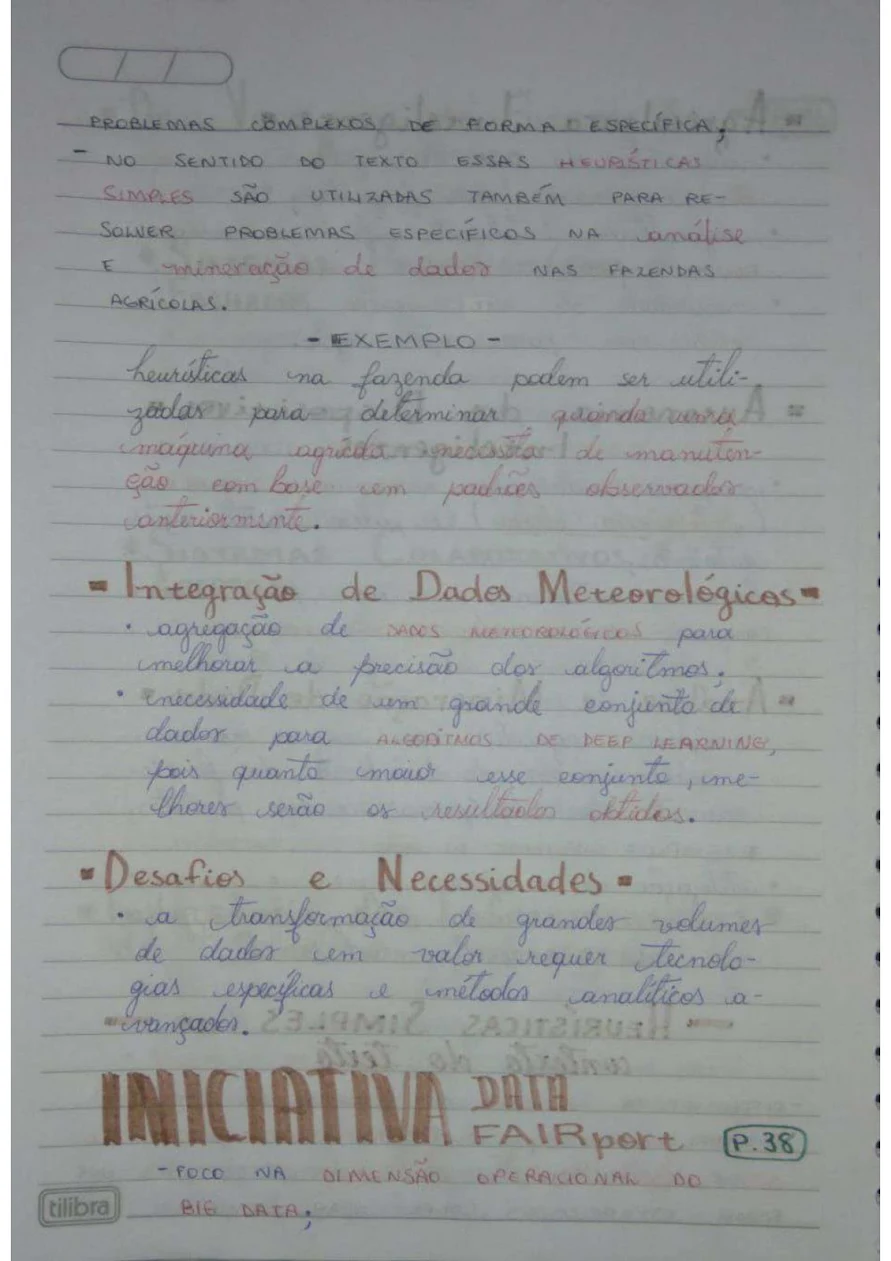 PROBLEMAS COMPLEXOS DE FORMA ESPECÍFICA;
- NO SENTIDO DO TEXTO ESSAS HEURÍSTICAS
SIMPLES SÃO UTILIZADAS TAMBÉM PARA RE-
SOLVER PROBLEMAS ESPECÍFICOS NA análise
E mineração de dados NAS FAZENDAS
AGRÍCOLAS.
- EXEMPLO -
heurísticas na fazenda podem ser utili-
zadas para determinar quando uma
máquina agrícola necessitar de manuten-
ção com base em padrões observados
anteriormente.
- Integração de Dados Meteorológicos -
• agregação de DADOS METEOROLÓGICOS para
melhorar a precisão dos algoritmos;
• necessidade de um grande conjunto de
dados para ALGORITMOS DE DEEP LEARNING,
pois quanto maior esse conjunto, me-
lhores serão os resultados obtidos.
- Desafios e Necessidades -
• a transformação de grandes volumes
de dados em valor requer tecnolo-
gias específicas e métodos analíticos a-
vançados.
INICIATIVA DATA
FAIRport P.38
- FOCO NA DIMENSÃO OPERACIONAL DO
BIG DATA;
tilibra